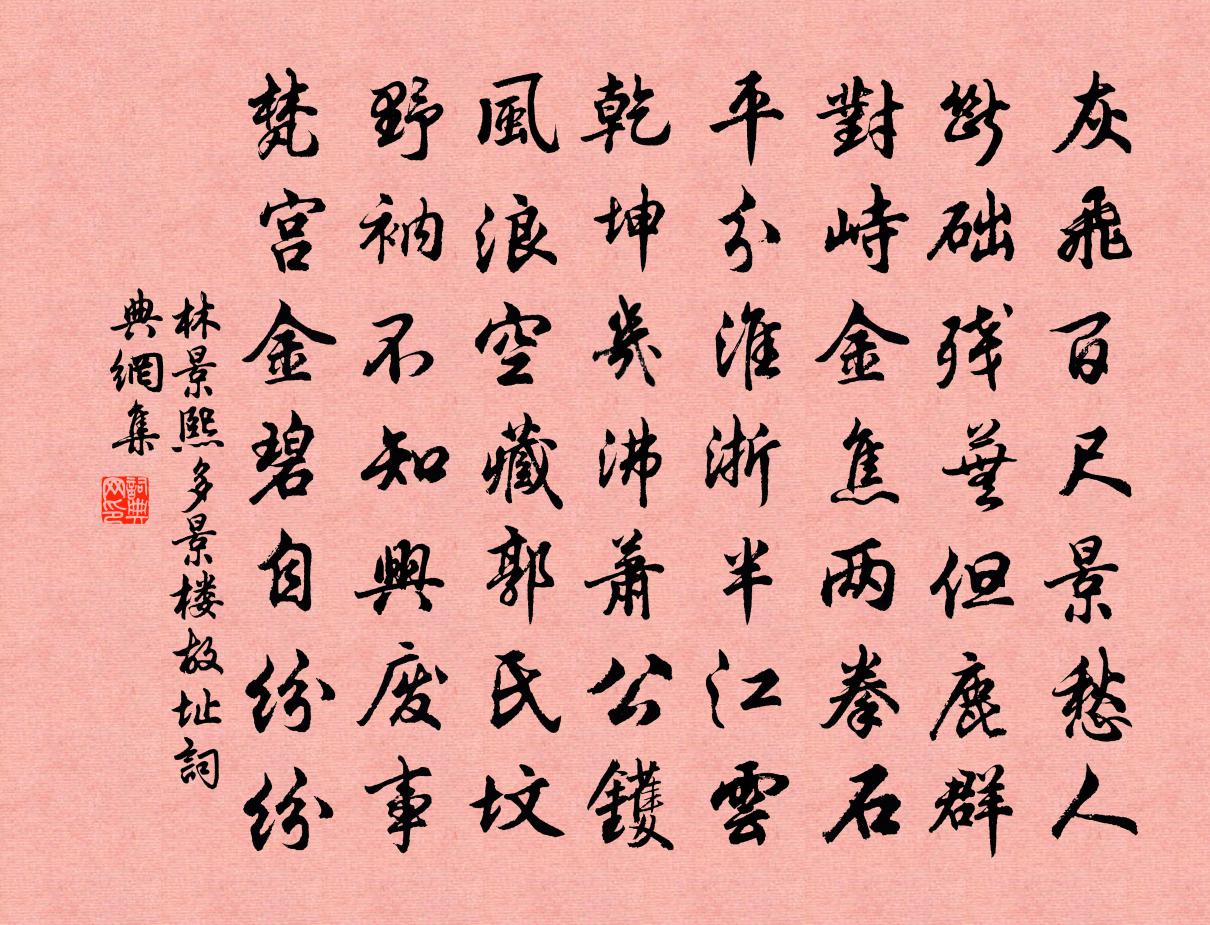 灰飛百尺景愁人
斷础残蕪但鹿群
對峙金焦两拳石
平分淮浙半江雲
乾坤幾沸蕭公鑊
風浪空藏郭氏坟
野衲不知興废事
梵宫金碧自纷纷
林景熙多景楼故址詞
典網集
詞典
网印